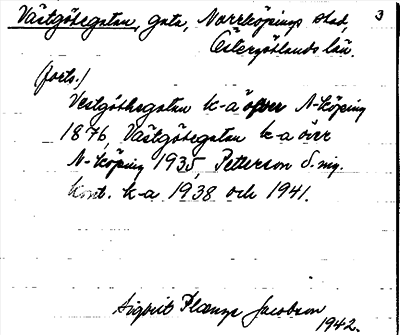 Västgötegatan, gata, Norrköpings stad, 3
Östergötlands län.
(forts.)
Vestgöthegatan k-a öfver N-köping
1876, Västgötegatan k-a över
N-köping 1935, Petterson S. ny.
kont. k-a 1938 och 1941.
Sigbrit Plænge Jacobson
1942.